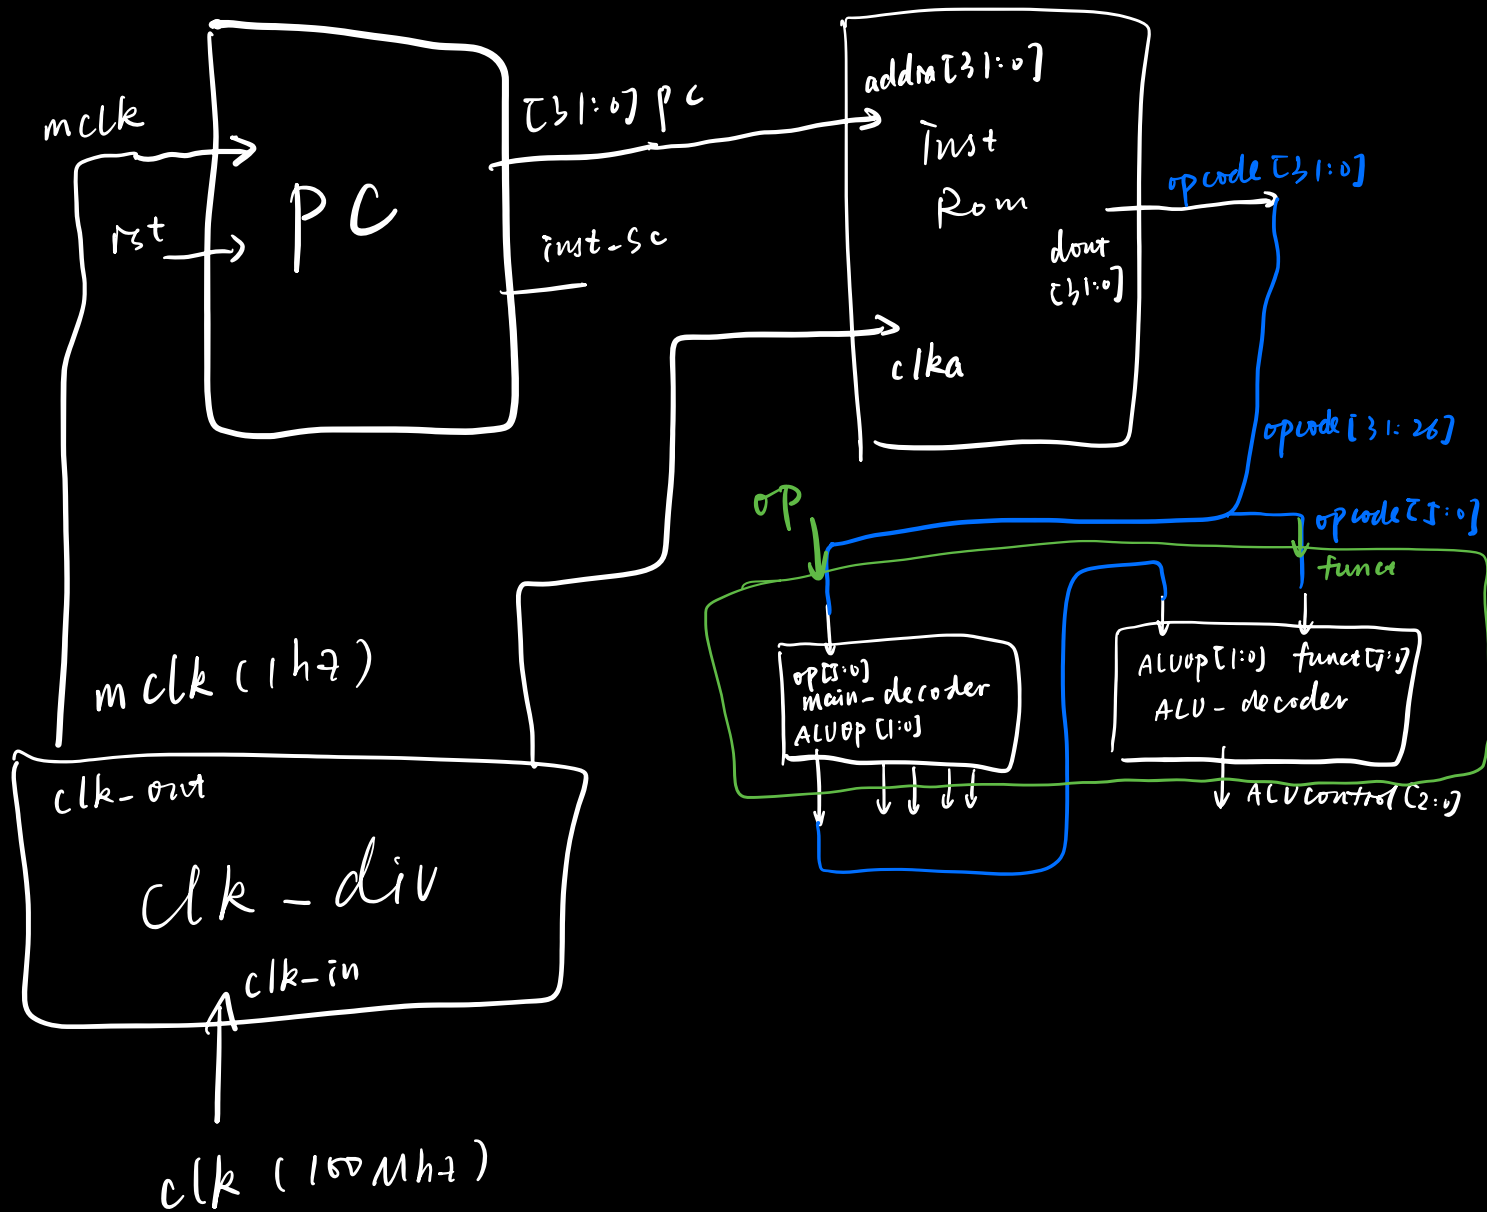 mclk
rst
PC
[31:0] pc
inst_sc
addra[31:0]
Inst
Rom
dout
[31:0]
clka
opcode[31:0]
opcode[31:26]
opcode[5:0]
op
funct
op[5:0]
main_decoder
ALUOp[1:0]
ALUOp[1:0] funct[5:0]
ALU_decoder
ALUcontrol[2:0]
mclk(1hz)
clk_out
clk_div
clk_in
clk (100Mhz)